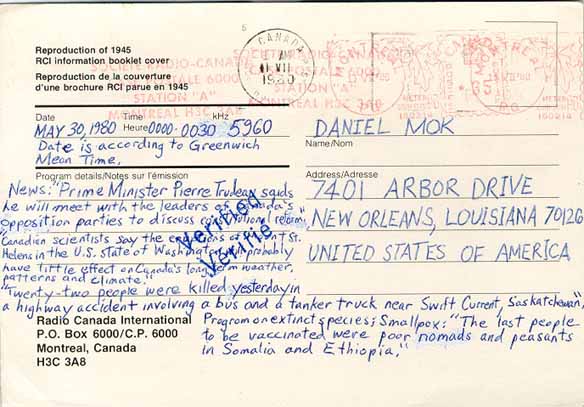 Reproduction of 1945
RCI information booklet cover
Reproduction de la couverture
d'une brochure RCI parue en 1945
CANADA
VII
1980
SOCIETE RADIO-CANADA
POSTALE 6000
STATION "A"
MONTREAL H3C 3A8
MONTREAL
P.Q.
Date Time/Heure kHz
MAY 30, 1980 0000-0030 5960
Date is according to Greenwich
Mean Time.
DANIEL MOK
Name/Nom
Program details/Notes sur l'émission
Address/Adresse
7401 ARBOR DRIVE
NEW ORLEANS, LOUISIANA 70126
UNITED STATES OF AMERICA
News: "Prime Minister Pierre Trudeau saids
he will meet with the leaders of Canada's
opposition parties to discuss constitutional reform"
"Canadian scientists say the eruptions of Mount St.
Helens in the U.S. state of Washington will probably
have little effect on Canada's long term weather,
patterns and climate."
"Twenty-two people were killed yesterday in
a highway accident involving a bus and a tanker truck near Swift Current, Saskatchewan",
Program on extinct species; Smallpox: "The last people
to be vaccinated were poor nomads and peasants
in Somalia and Ethiopia."
Verified
Verifié
Radio Canada International
P.O. Box 6000/C.P. 6000
Montreal, Canada
H3C 3A8